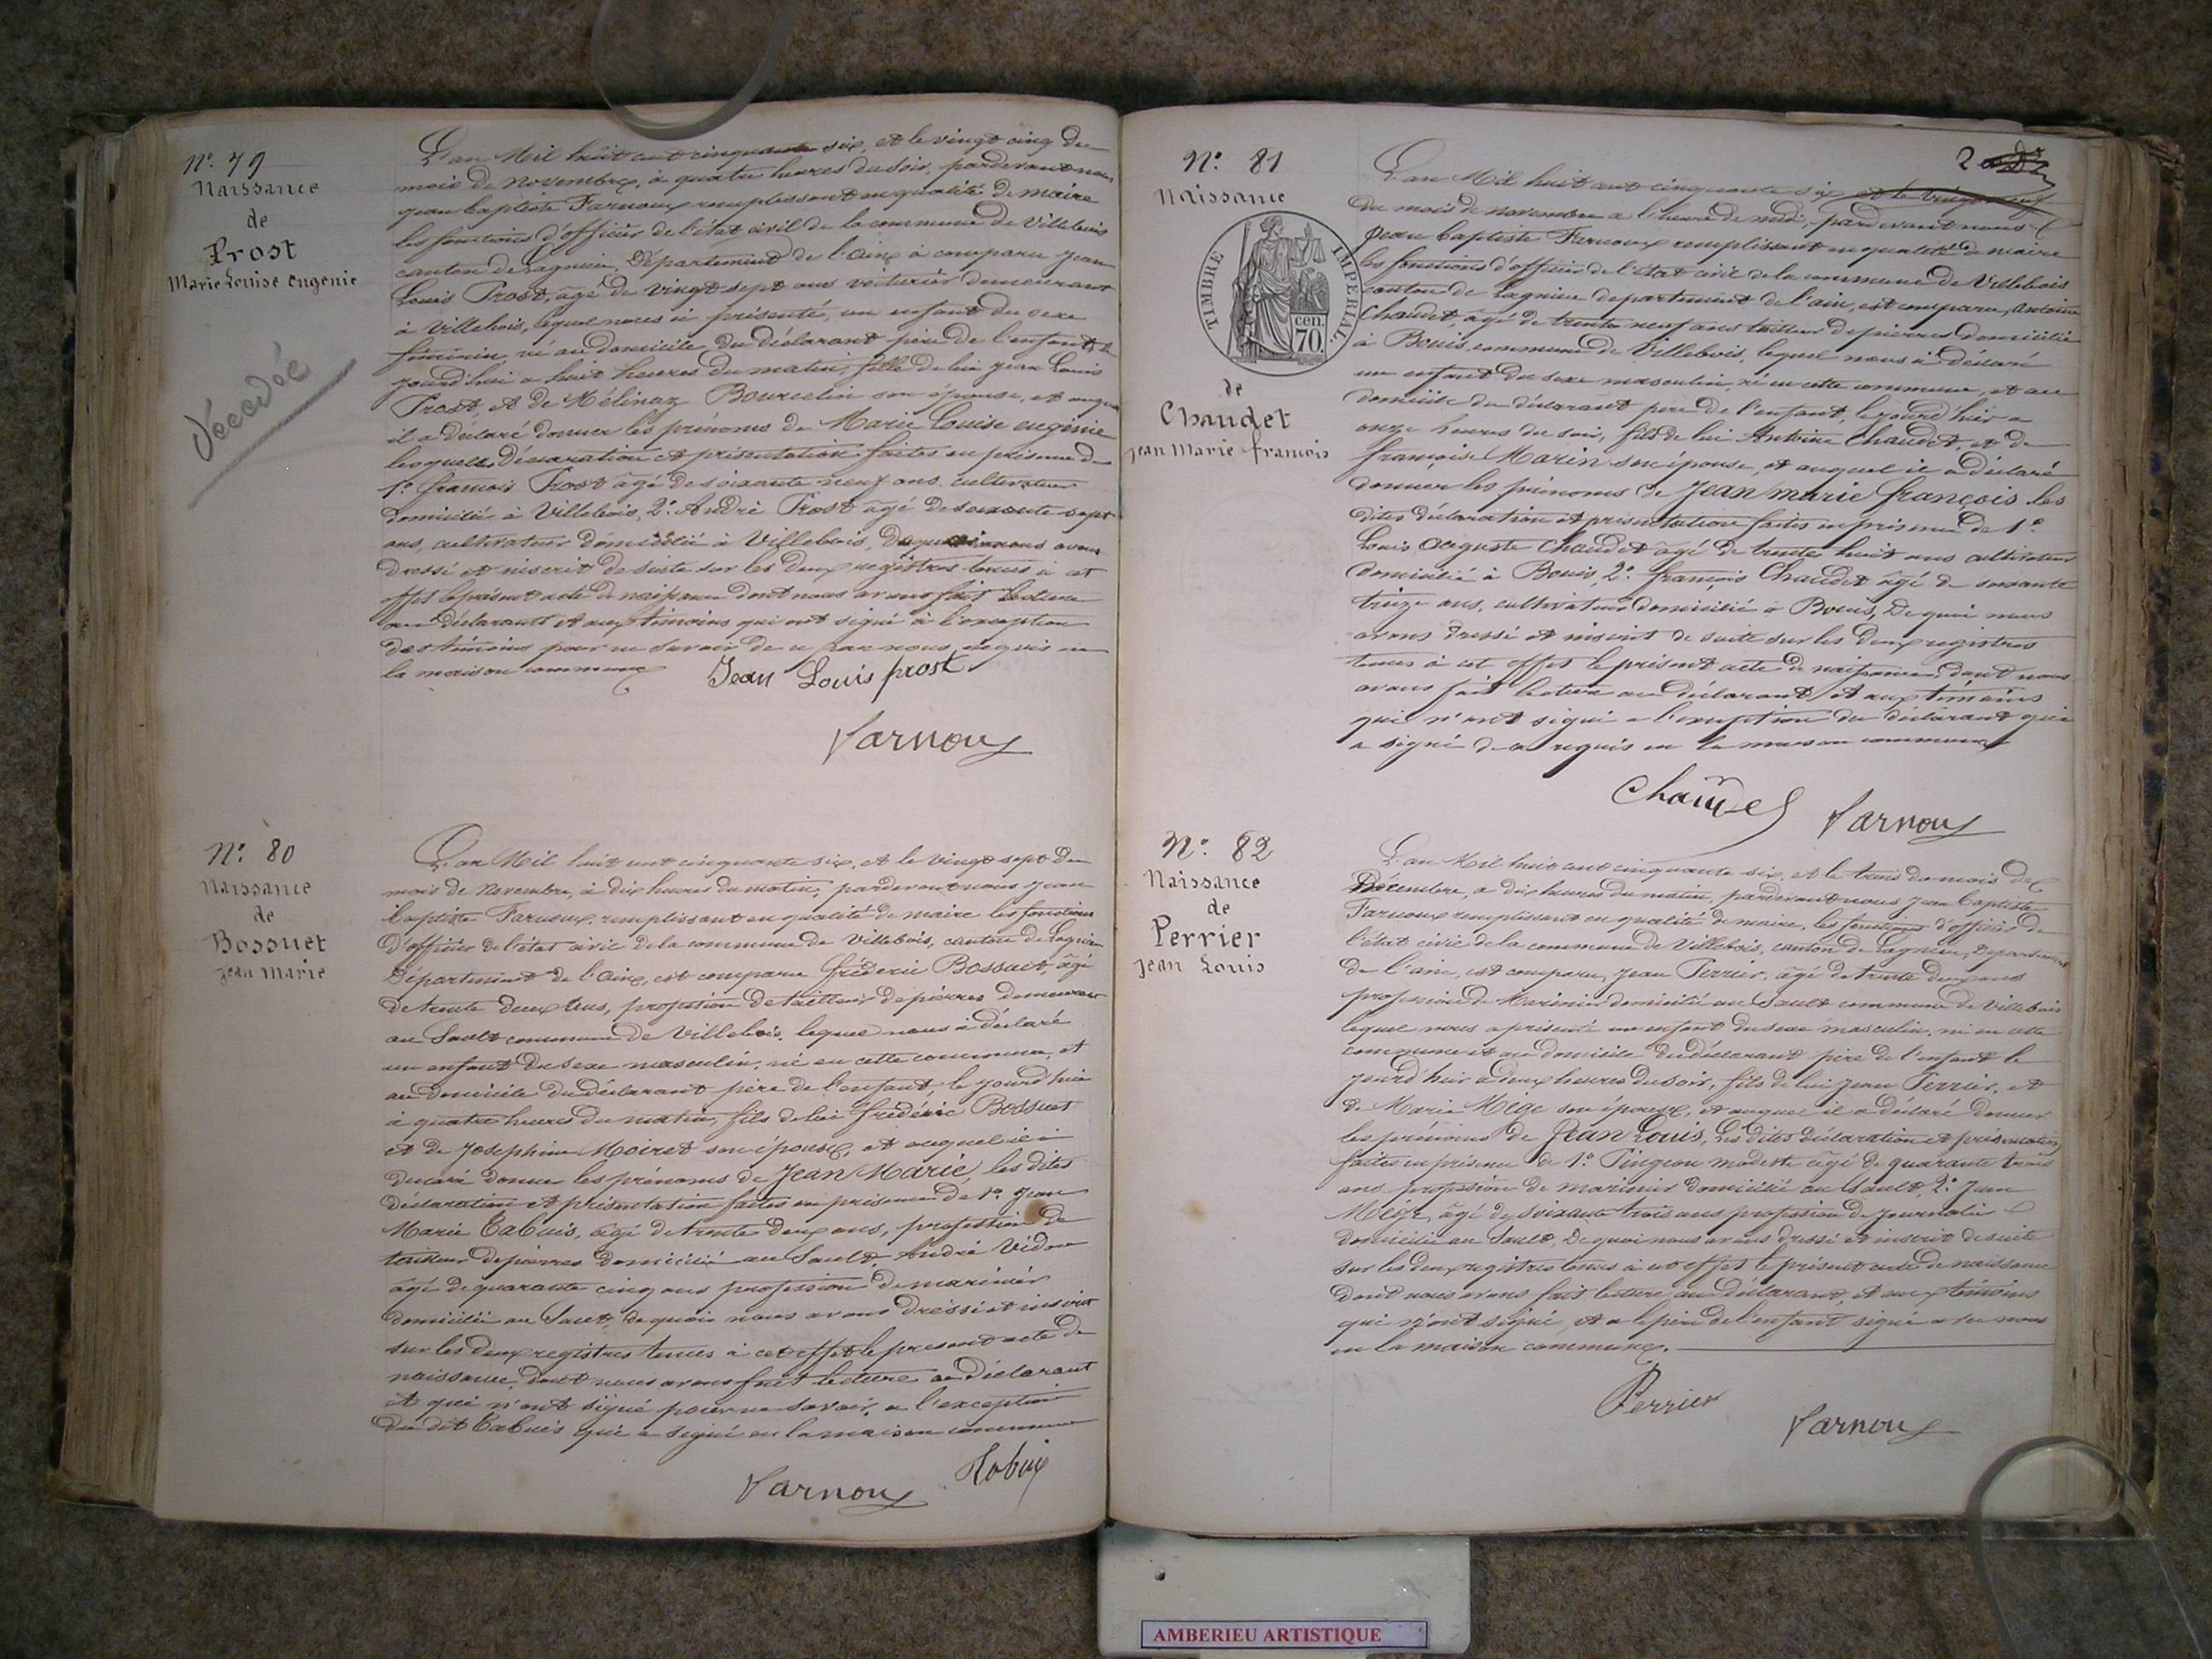 N°. 79
Naissance
de
Prost
Marie Louise Eugenie
Décédée
L'an Mil huit cent cinquante six, et le vingt cinq du
mois de Novembre, à quatre heures du soir, pardevant nous
Jean Baptiste Farnoux remplissant en qualité de maire
les fonctions d'officier de l'état civil de la commune de Villebois
canton de Lagnieu, Département de l'Ain, à comparu Jean
Louis Prost, âgé de vingt sept ans voiturier demeurant
à Villebois, lequel nous à présenté, un enfant du sexe
féminin, né au domicile du déclarant père de l'enfant, le
jourd'hui a huit heures du matin, fille de lui Jean Louis
Prost, et de Mélinaz Bourcelin son épouse, et auquel
il a déclaré donner les prénoms de Marie Louise eugénie
lesquelles déclaration et présentation faites en présence de
1° francois Prost âgé de soixante neuf ans cultivateur
domicilié à Villebois, 2° André Prost âgé de soixante sept
ans, cultivateur domicilié à Villebois, nous avons
dressé et inscrit de suite sur les deux registres tenus à cet
effet le présent acte de naissance dont nous avons fait lecture
au déclarant et aux témoins qui ont signé à l'exception
des témoins pour ne savoir de ce par nous requis en
la maison commune
Jean Louis prost
Farnoux
N°. 80
Naissance
de
Bossuet
Jean Marie
L'an Mil huit cent cinquante six, et le vingt sept du
mois de Novembre, à dix heures du matin, pardevant nous Jean
Baptiste Farnoux, remplissant en qualité de maire les fonctions
d'officier de l'état civil de la commune de Villebois, canton de Lagnieu
Département de l'Ain, est comparu fréderic Bossuet, âgé
de trente deux ans, profession de tailleur de pierres demeurant
au Sault commune de Villebois, lequel nous à déclaré
un enfant du sexe masculin, né en cette commune, et
au domicile du déclarant père de l'enfant, le jourd'hui
à quatre heures du matin, fils de lui frédéric Bossuet
et de Joséphine Moiret son épouse, et auquel il à
déclaré donner les prénoms de Jean Marie, les dites
déclaration et présentation faites en présence de 1° Jean
Marie Tabuis, âgé de trente deux ans, profession de
tailleur de pierres domicilié au Sault, André Vidon
âgé de quarante cinq ans profession de marinier
domicilié au Sault, de quoi nous avons dressé et inscrit
sur les deux registres tenus à cet effet le présent acte de
naissance, dont nous avons fait lecture au déclarant
et qui n'ont signé pour ne savoir, a l'exception
du dit Tabuis qui a signé en la maison commune
Farnoux
N°. 81
Naissance
TIMBRE IMPERIAL
70 cen.
de
Chaudet
Jean Marie francois
2
L'an Mil huit cent cinquante six et le vingt neuf
du mois de novembre a l'heure de midi, pardevant nous
Jean Baptiste Farnoux remplissant en qualité de maire
les fonctions d'officier de l'état civil de la commune de Villebois
canton de Lagnieu departement de l'ain, est comparu, Antoine
Chaudet, âgé de trente neuf ans tailleur de pierres domicilié
à Bouis commune de Villebois, lequel nous à déclaré
un enfant du sexe masculin, né en cette commune, et au
domicile du déclarant père de l'enfant, le jourd'hui a
onze heures du soir, fils de lui Antoine Chaudet, et de
françoise Marin son épouse, et auquel il a déclaré
donner les prénoms de Jean marie françois les
dites déclaration et présentation faites en présence de 1°
Louis Auguste Chaudet âgé de trente huit ans cultivateur
domicilié à Bouis, 2° françois Chaudet âgé de soixante
treize ans, cultivateur domicilié à Bouis, De quoi nous
avons dressé et inscrit de suite sur les deux registres
tenus à cet effet le présent acte de naissance, dont nous
avons fait lecture au déclarant et aux témoins
qui n'ont signé a l'exeption du déclarant qui
a signé de ce requis en la maison commune
Chaudet Farnoux
N°. 82
Naissance
de
Perrier
Jean Louis
L'an Mil huit cent cinquante six, et le trois du mois de
Décembre, a dix heures du matin, pardevant nous Jean Baptiste
Farnoux remplissant en qualité de maire, les fonctions d'officier de
l'état civil de la commune de Villebois, canton de Lagnieu, Departement
de l'ain, est comparu, Jean Perrier, âgé de trente deux ans
profession de Marinier domicilié au Sault commune de Villebois
lequel nous a présenté un enfant du sexe masculin, né en cette
commune et au domicile du déclarant père de l'enfant le
jourd'hui a deux heures du soir, fils de lui Jean Perrier, et
de Marie Mége son épouse, et auquel il a déclaré donner
les prénoms de Jean Louis, Les dites déclaration et présentation
faites en présence de 1° Pingeon modeste âgé de quarante trois
ans profession de marinier domicilié au Sault, 2° Jean
Mége, âgé de soixante trois ans profession de journalier
domicilié au Sault, De quoi nous avons dressé et inscrit de suite
sur les deux registres tenus à cet effet le présent acte de naissance
dont nous avons fait lecture au déclarant, et aux témoins
qui n'ont signé, et a le père de l'enfant signé avec nous
en la maison commune.
Perrier
Farnoux
AMBERIEU ARTISTIQUE